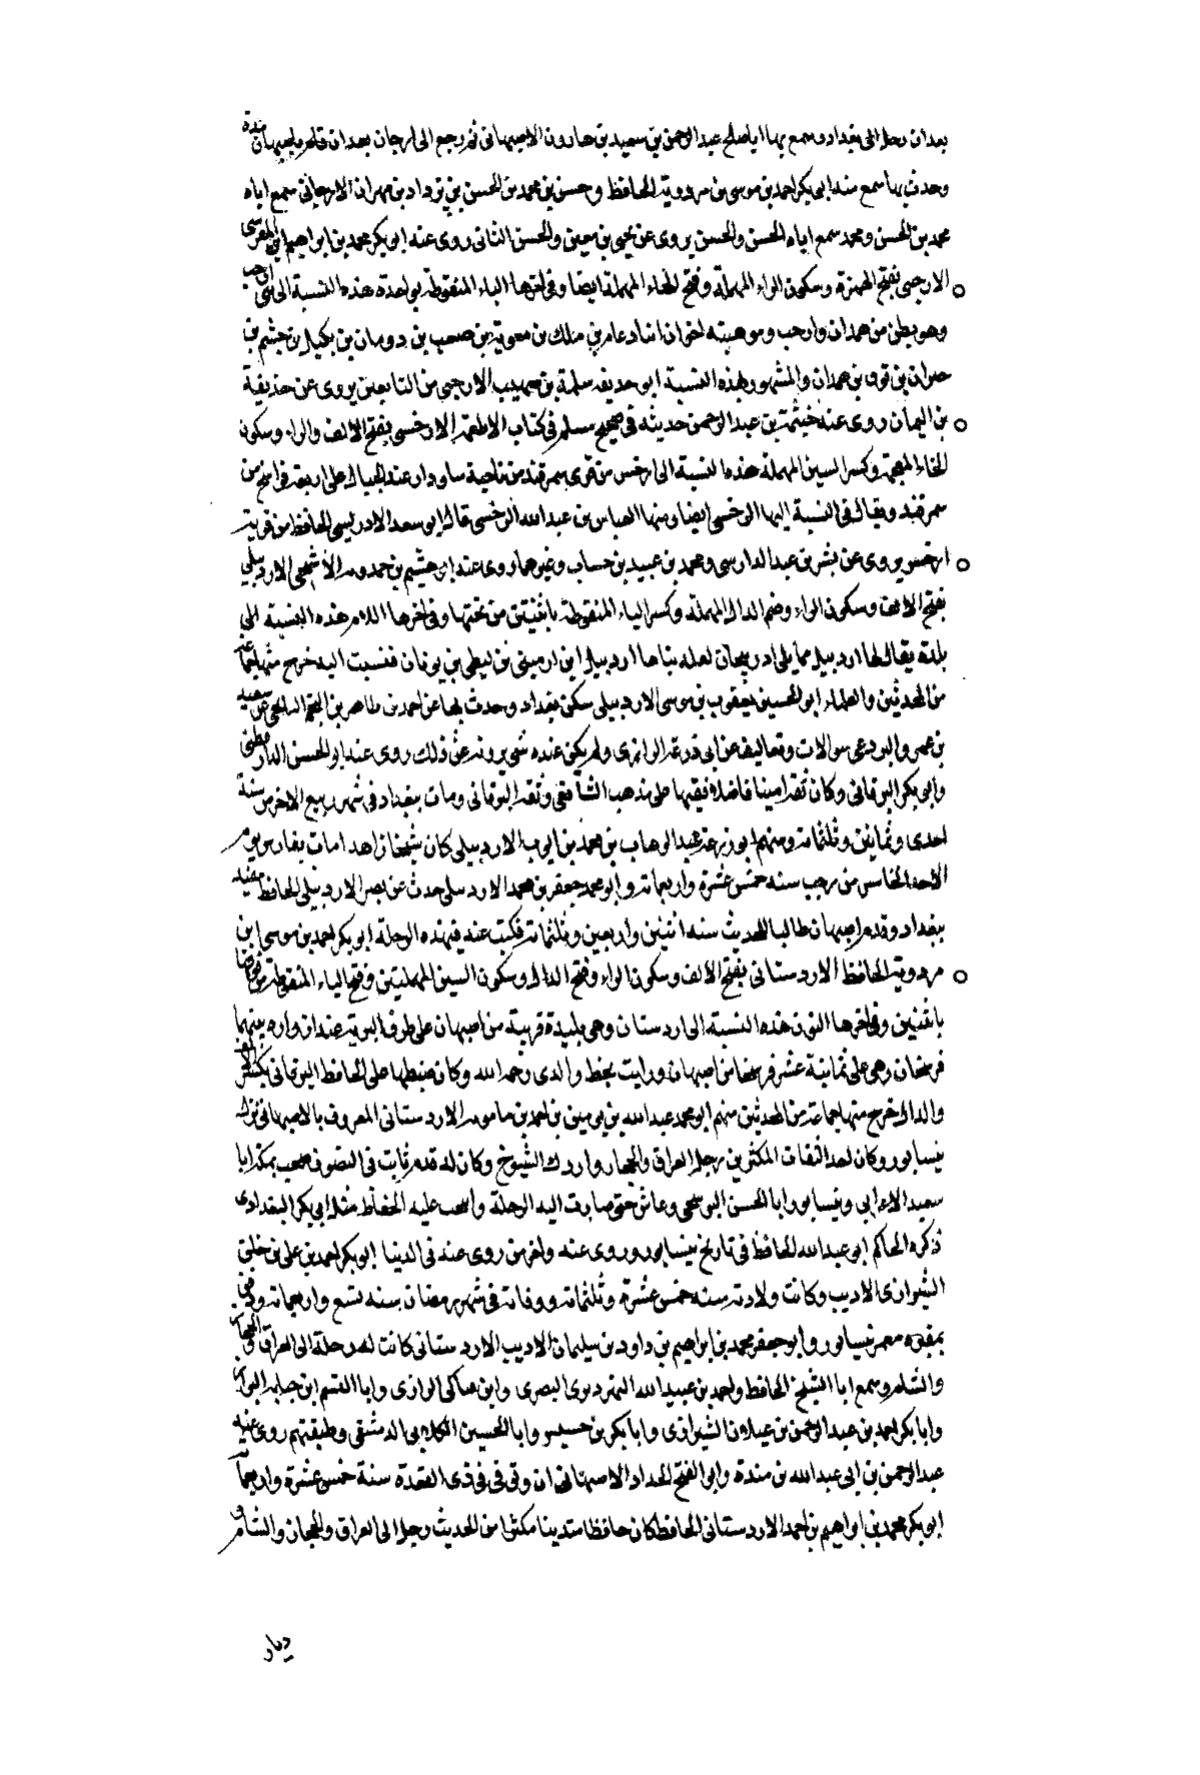 بعد ان رحل الى بغداد وسمع بها ابا صالح عبد الرحمن بن سعيد بن هارون الاصبهانى ثم رجع الى ارجان بعد ان قدم اصبهان مدة
وحدث بها سمع منه ابى بكر احمد بن موسى بن مردوية الحافظ وحسن بن محمد بن الحسن بن يزداد بن مهران الارجانى سمع اباه
محمد بن الحسن ومحمد سمع اباه الحسن والحسن يروى عن يحيى بن معين والحسن الثانى روى عنه ابو بكر محمد بن ابراهيم ابن المقرى
الارحبى بفتح الهمزة وسكون الراء المهملة وفتح الحاء المهملة ايضا وفى اخرها الباء المنقوطة بواحدة هذه النسبة الى بنى ارحب
وهو بطن من همدان وارحب وموهبته اخوان ابناد عامر بن ملك بن معوية بن صعب بن دومان بن بكيل بن جشم بن
خيران بن نوف بن همدان والمشهور بهذه النسبة ابو حذيفه سلمة بن صهيب الارحبى من التابعين يروى عن حذيفة
بن اليمان روى عنه خيثمة بن عبد الرحمن حديثه فى صحيح مسلم فى كتاب الاطعمة الارخسى بفتح الالف والراء وسكون
الخاء المعجمة وكسر السين المهملة هذه النسبة الى ارخس من قرى سمرقند من ناحية ساودار عند الجبال على اربعة فراسخ من
سمرقند ويقال فى النسبة اليها الرخسى ايضا ومنها العباس بن عبد الله الرخسى قال ابو سعد الادريسى الحافظ من قرية
ارخس يروى عن بشر بن عبد الدارسى ومحمد بن عبيد بن حساب وغيرهما روى عنه ابو هشيم بن حمدويه الاشجى الاردبيلى
بفتح الالف وسكون الراء وضم الدال المهملة وكسر الباء المنقوطة باثنتين من تحتها وفى اخرها اللام هذه النسبة الى
بلدة يقال لها اردبيل مما يلى ادربيجان لعله بناها اردبيل ابن ارمينى بن ليطى بن يونان فنسبت اليه خرج منها جماعة
من المحدثين والعلماء ابو الحسين يعقوب بن موسى الاردبيلى سكن بغداد وحدث بها عن احمد بن طاهر بن النجم الميانجى عن سعيد
بن عمرو البردعى سوالات وتعاليف عن ابى زرعة الرازى ولم يكن عنده شى يرويه غير ذلك روى عنه ابو الحسن الدارقطنى
وابى بكر البرقانى وكان ثقة امينا فاضلا فقيها على مذهب الشافعى وثقه البرقانى ومات ببغداد فى شهر ربيع الاخر من سنة
احدى وثمانين وثلثمائة ومنهم ابو زرعة عبد الوهاب بن محمد بن ايوب الاردبيلى كان شيخا زاهدا مات بفارس يوم
الاحد الخامس من رجب سنه خمس عشرة واربعمائة وابو محمد جعفر بن محمد الاردبيلى حدث عن نصر الاردبيلى الحافظ مفيد
بغداد وقدم اصبهان طالبا للحديث سنه اثنين واربعين وثلثمائة فكتب عنه فى هذه الرحلة ابو بكر احمد بن موسى ابن
مردوية الحافظ الاردستانى بفتح الالف وسكون الراء وفتح الدال وسكون السين المهملتين وفتح التاء المنقوطة من فوقها
باثنتين وفى اخرها النون هذه النسبة الى اردستان وهى بليدة قريبة من اصبهان على طرف البرية عند ازواره بينهما
فرسخان وهى على ثمانية عشر فرسخا من اصبهان ورايت بخط والدى رحمه الله وكان ضبطها على الحافظ الدقاق بكسر الالف
والدال خرج منها جماعة من المحدثين منهم ابو محمد عبد الله بن يوسف بن احمد بن مامويه الاردستانى المعروف بالاصبهانى نزل
نيسابور وكان احد الثقات المكثرين رحل الى العراق والحجاز وادرك الشيوخ وكان له قدم ثابت فى التصوف صحب بمكة ابا
سعيد الاعرابى وبنيسابور ابا الحسن البوسنجى وعاش حتى صارت اليه الرحلة وانتخب عليه الحفاظ مثل ابى بكر البغدادى
ذكره الحاكم ابو عبد الله الحافظ فى تاريخ نيسابور وروى عنه واخر من روى عنه فى الدنيا ابو بكر احمد بن على بن خلف
الشيرازى الاديب وكانت ولادته سنه خمس عشرة وثلثمائة ووفاته فى شهر رمضان سنه تسع واربعمائة ودفن
بمقبره معمر نيسابور وابو جعفر محمد بن ابراهيم بن داود بن سليمان الاديب الاردستانى كانت له رحلة الى العراق والحجاز
والشام وسمع ابا الشيخ الحافظ واحمد بن عبيد الله النهرديرى البصرى وابن هاكى الرازى وابا القسم ابن حبابه البزاز
وابا بكر احمد بن عبد الرحمن بن عبدان الشيرازى وابا بكر بن حسيس وابا الحسين الكلابى الدمشقى وطبقتهم روى عنه
عبد الرحمن بن ابى عبد الله بن مندة وابو الفتح الحداد الاصبهانيان وتوفى فى ذى القعدة سنة خمس عشرة واربعمائة
ابو بكر محمد بن ابراهيم بن احمد الاردستانى الحافظ كان حافظا متدينا مكثرا من الحديث رحل الى العراق والحجاز والشام و
ديار